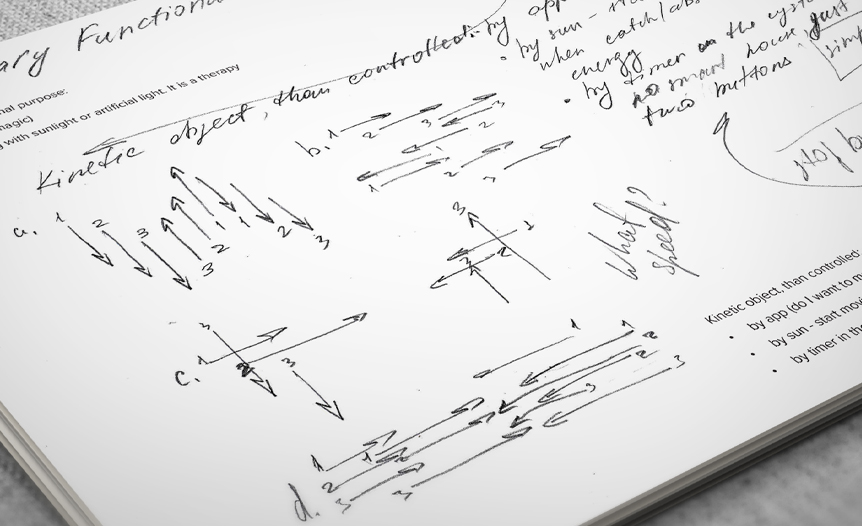 ary Functiona
nal purpose:
magic)
g with sunlight or artificial light. It is a therapy
Kinetic object, than controlled: by app
• by sun -
when catch/abs
energy
• by timer in the syste
smart house just
two buttons
simp
a. 1 2 3 3 2 1 1 2 3
b. 1 2 3 3 2 1 1 2 3
3 1 2 3
What
speed?
stop b
c. 1 2 3 3
d. 1 2 3 1 3 1 1 2 2 3 3
Kinetic object, than controlled:
• by app (do I want to m
• by sun - start mov
• by timer in the